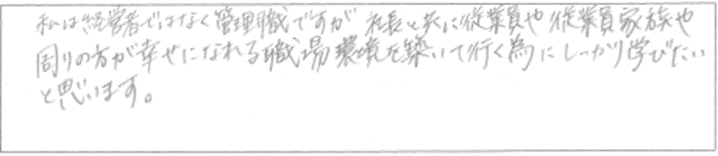 私は経営者ではなく管理職ですが 社長と共に従業員や従業員家族や
周りの方が幸せになれる職場環境を築いて行く為にしっかり学びたい
と思います。